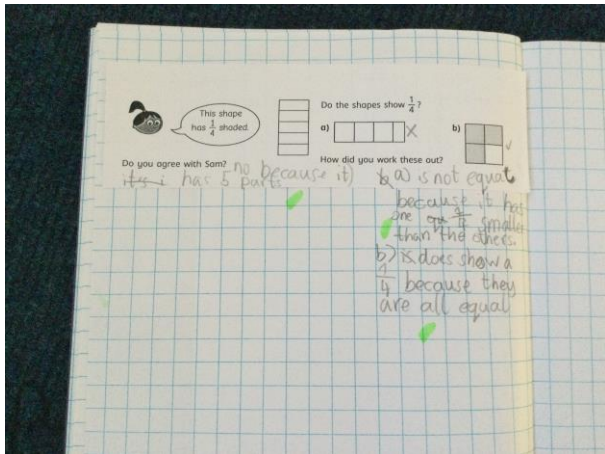 This shape
has 1/4 shaded.
Do you agree with Sam?
no because it
its i has 5 parts
Do the shapes show 1/4?
a)
b)
How did you work these out?
a) is not equal
because it has
one smaller
than the others.
b) is does show a
1/4 because they
are all equal